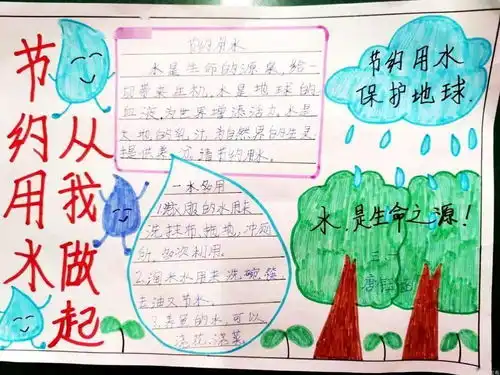 节约用水
从我做起
节约用水
水是生命的源泉,给一
切带来生机,水是地球的
血液,为世界增添活力,水是
大地的乳汁,为自然界的生灵
提供养 ,请节约用水。
一水多用
1.漱 服的水用来
洗抹布,拖地,冲厕
所,多次利用。
2.淘米水用来洗碗筷,
去油又节水。
3.养鱼的水可以
浇花、浇菜。
节约用水
保护地球
水,是生命之源!
三、一